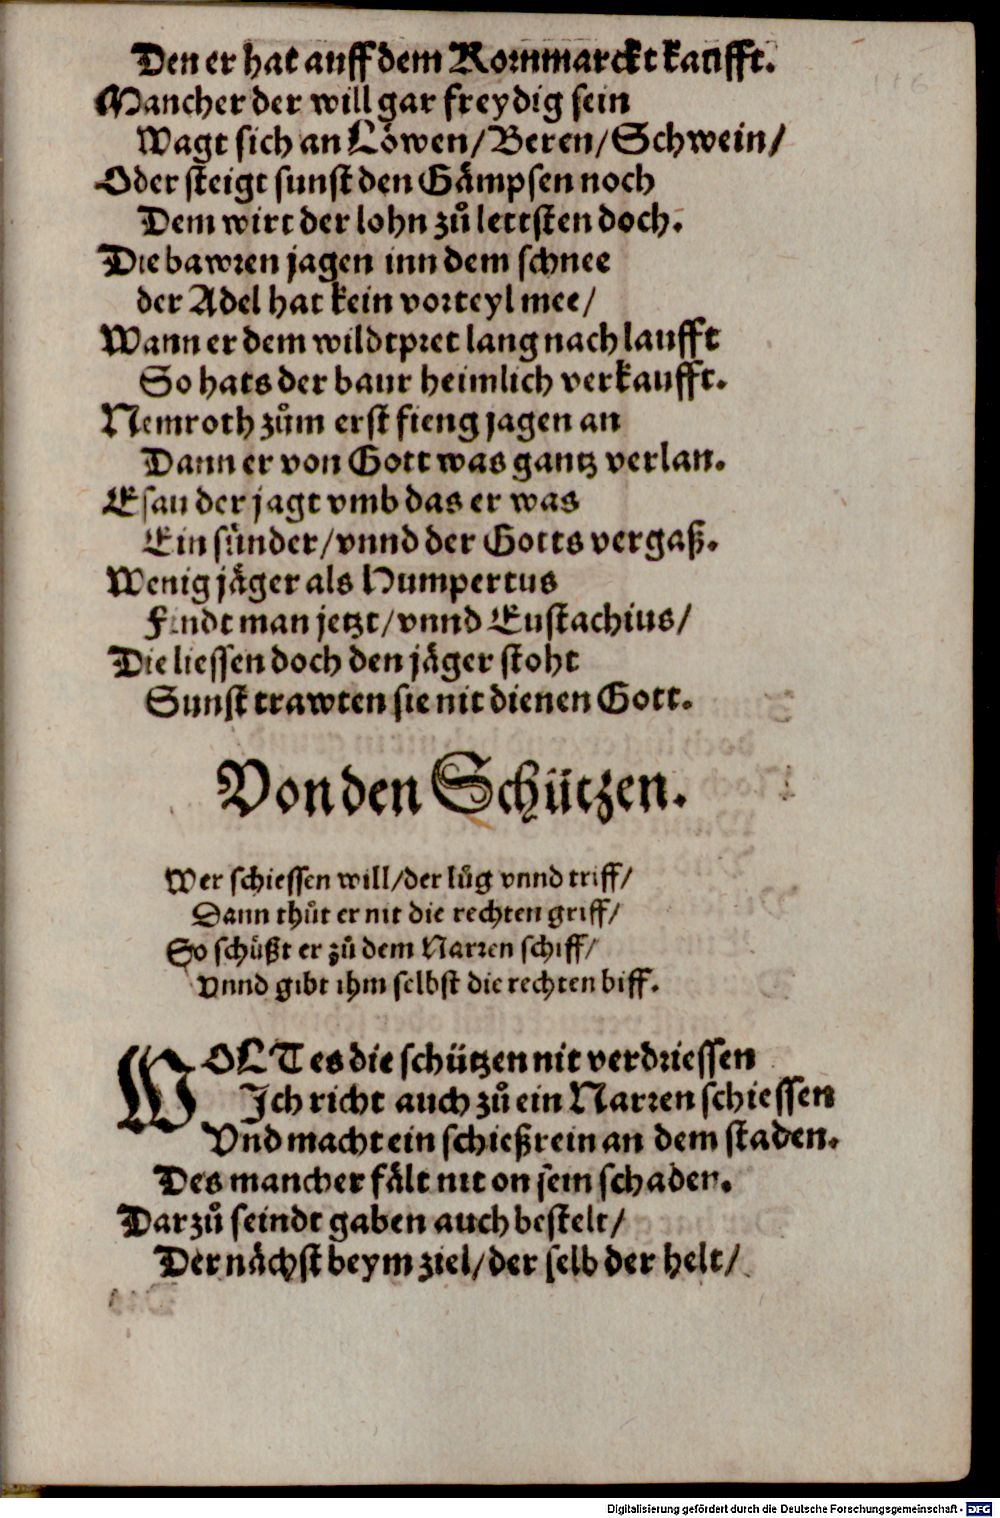 Den er hat auff dem Kornmarckt kaufft.
Mancher der will gar freydig sein
Wagt sich an Löwen/Beren/Schwein/
Oder steigt sunst den Gämpsen noch
Dem wirt der lohn zů lettsten doch.
Die bawren jagen inn dem schnee
der Adel hat kein vorteyl mee/
Wann er dem wildtpret lang nach laufft
So hats der baur heimlich verkaufft.
Nemroth zům erst fieng jagen an
Dann er von Gott was gantz verlan.
Esau der jagt vmb das er was
Ein sünder/vnnd der Gotts vergaß.
Wenig jäger als Humpertus
Findt man jetzt/vnnd Eustachius/
Die liessen doch den jäger stoht
Sunst trawten sie nit dienen Gott.
Von den Schützen.
Wer schiessen will/der lůg vnnd triff/
Dann thůt er nit die rechten griff/
So schüßt er zů dem Narren schiff/
Vnnd gibt ihm selbst die rechten biff.
WOLT es die schützen nit verdriessen
Ich richt auch zů ein Narren schiessen
Vnd macht ein schießrein an dem staden.
Des mancher fält nit on sein schaden.
Darzů seindt gaben auch bestelt/
Der nächst beym ziel/der selb der helt/
116
Digitalisierung gefördert durch die Deutsche Forschungsgemeinschaft - DFG